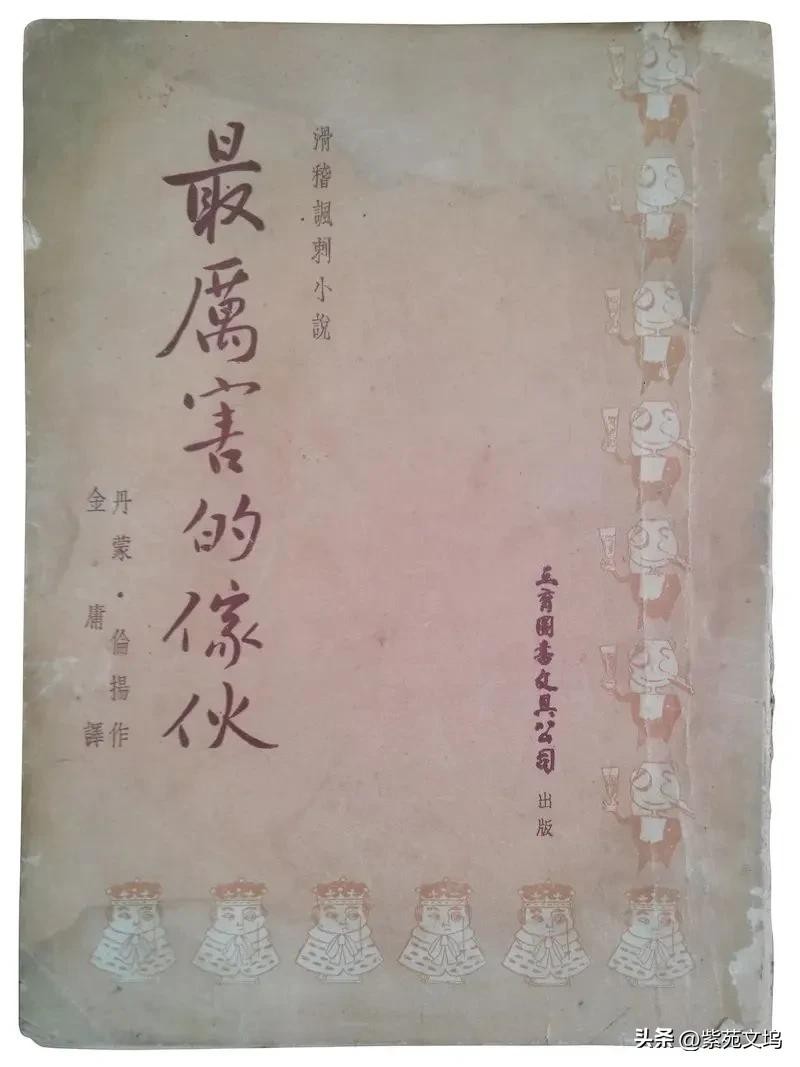 滑稽諷刺小說
最厲害的傢伙
丹蒙·倫揚作
金庸譯
三育圖書文具公司
出版
头条 @紫苑文坞